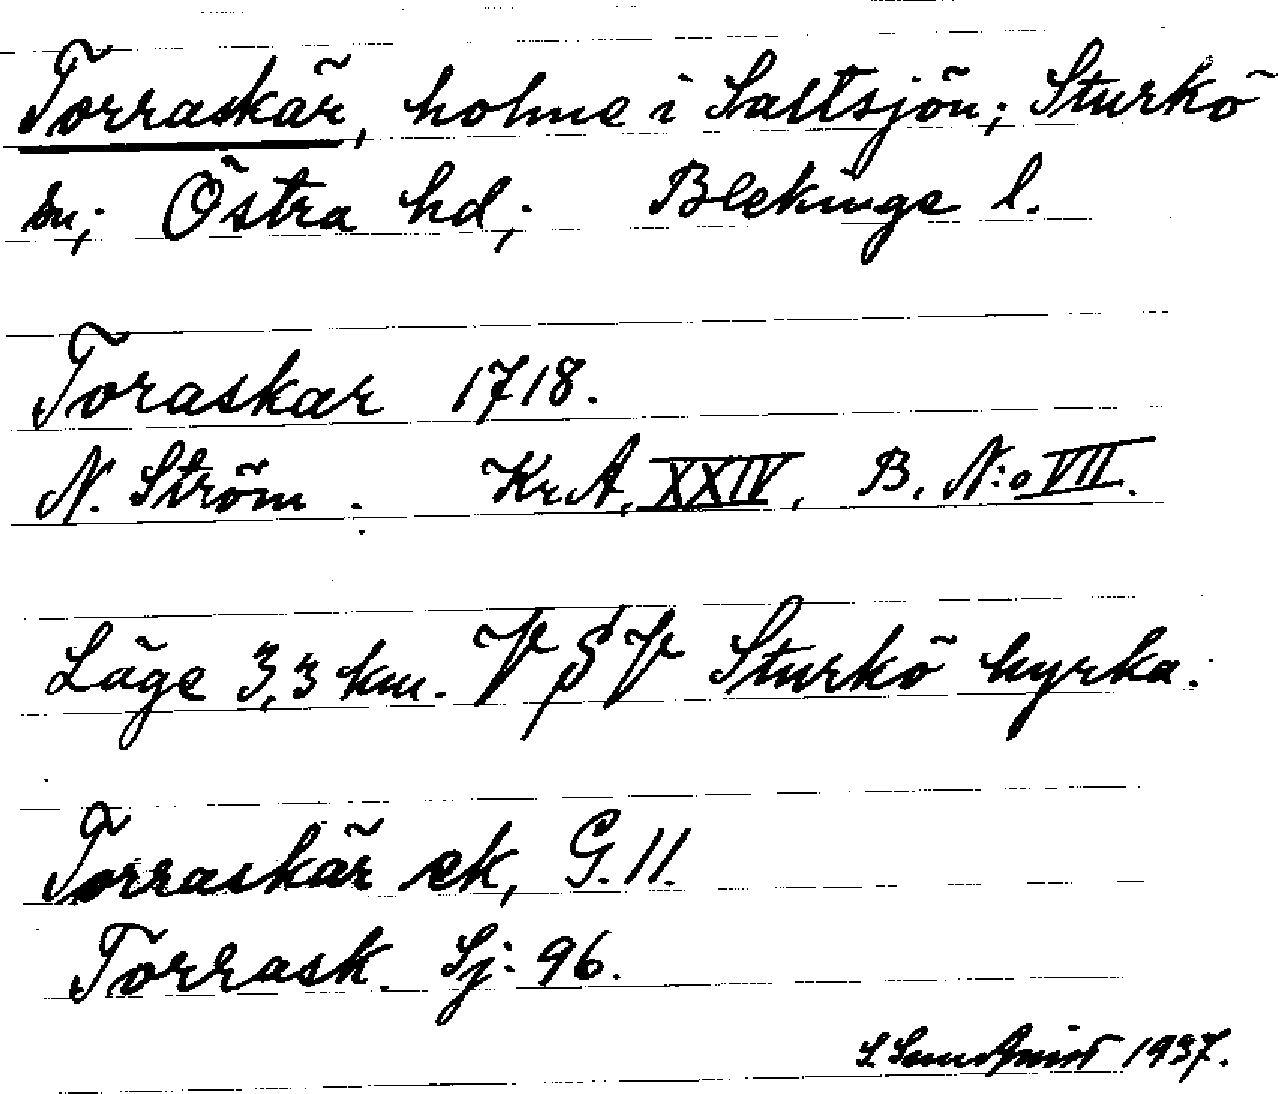 Torraskär, holme i Saltsjön; Sturkö
sn; Östra hd; Blekinge l.
Toraskar 1718.
N. Ström. Kr.A. XXIV, B. N:o VII.
Läge 3,3 km. V S V Sturkö kyrka.
Torraskär ek, G. 11.
Torrask. Sj: 96.
S. Sundqvist 1937.